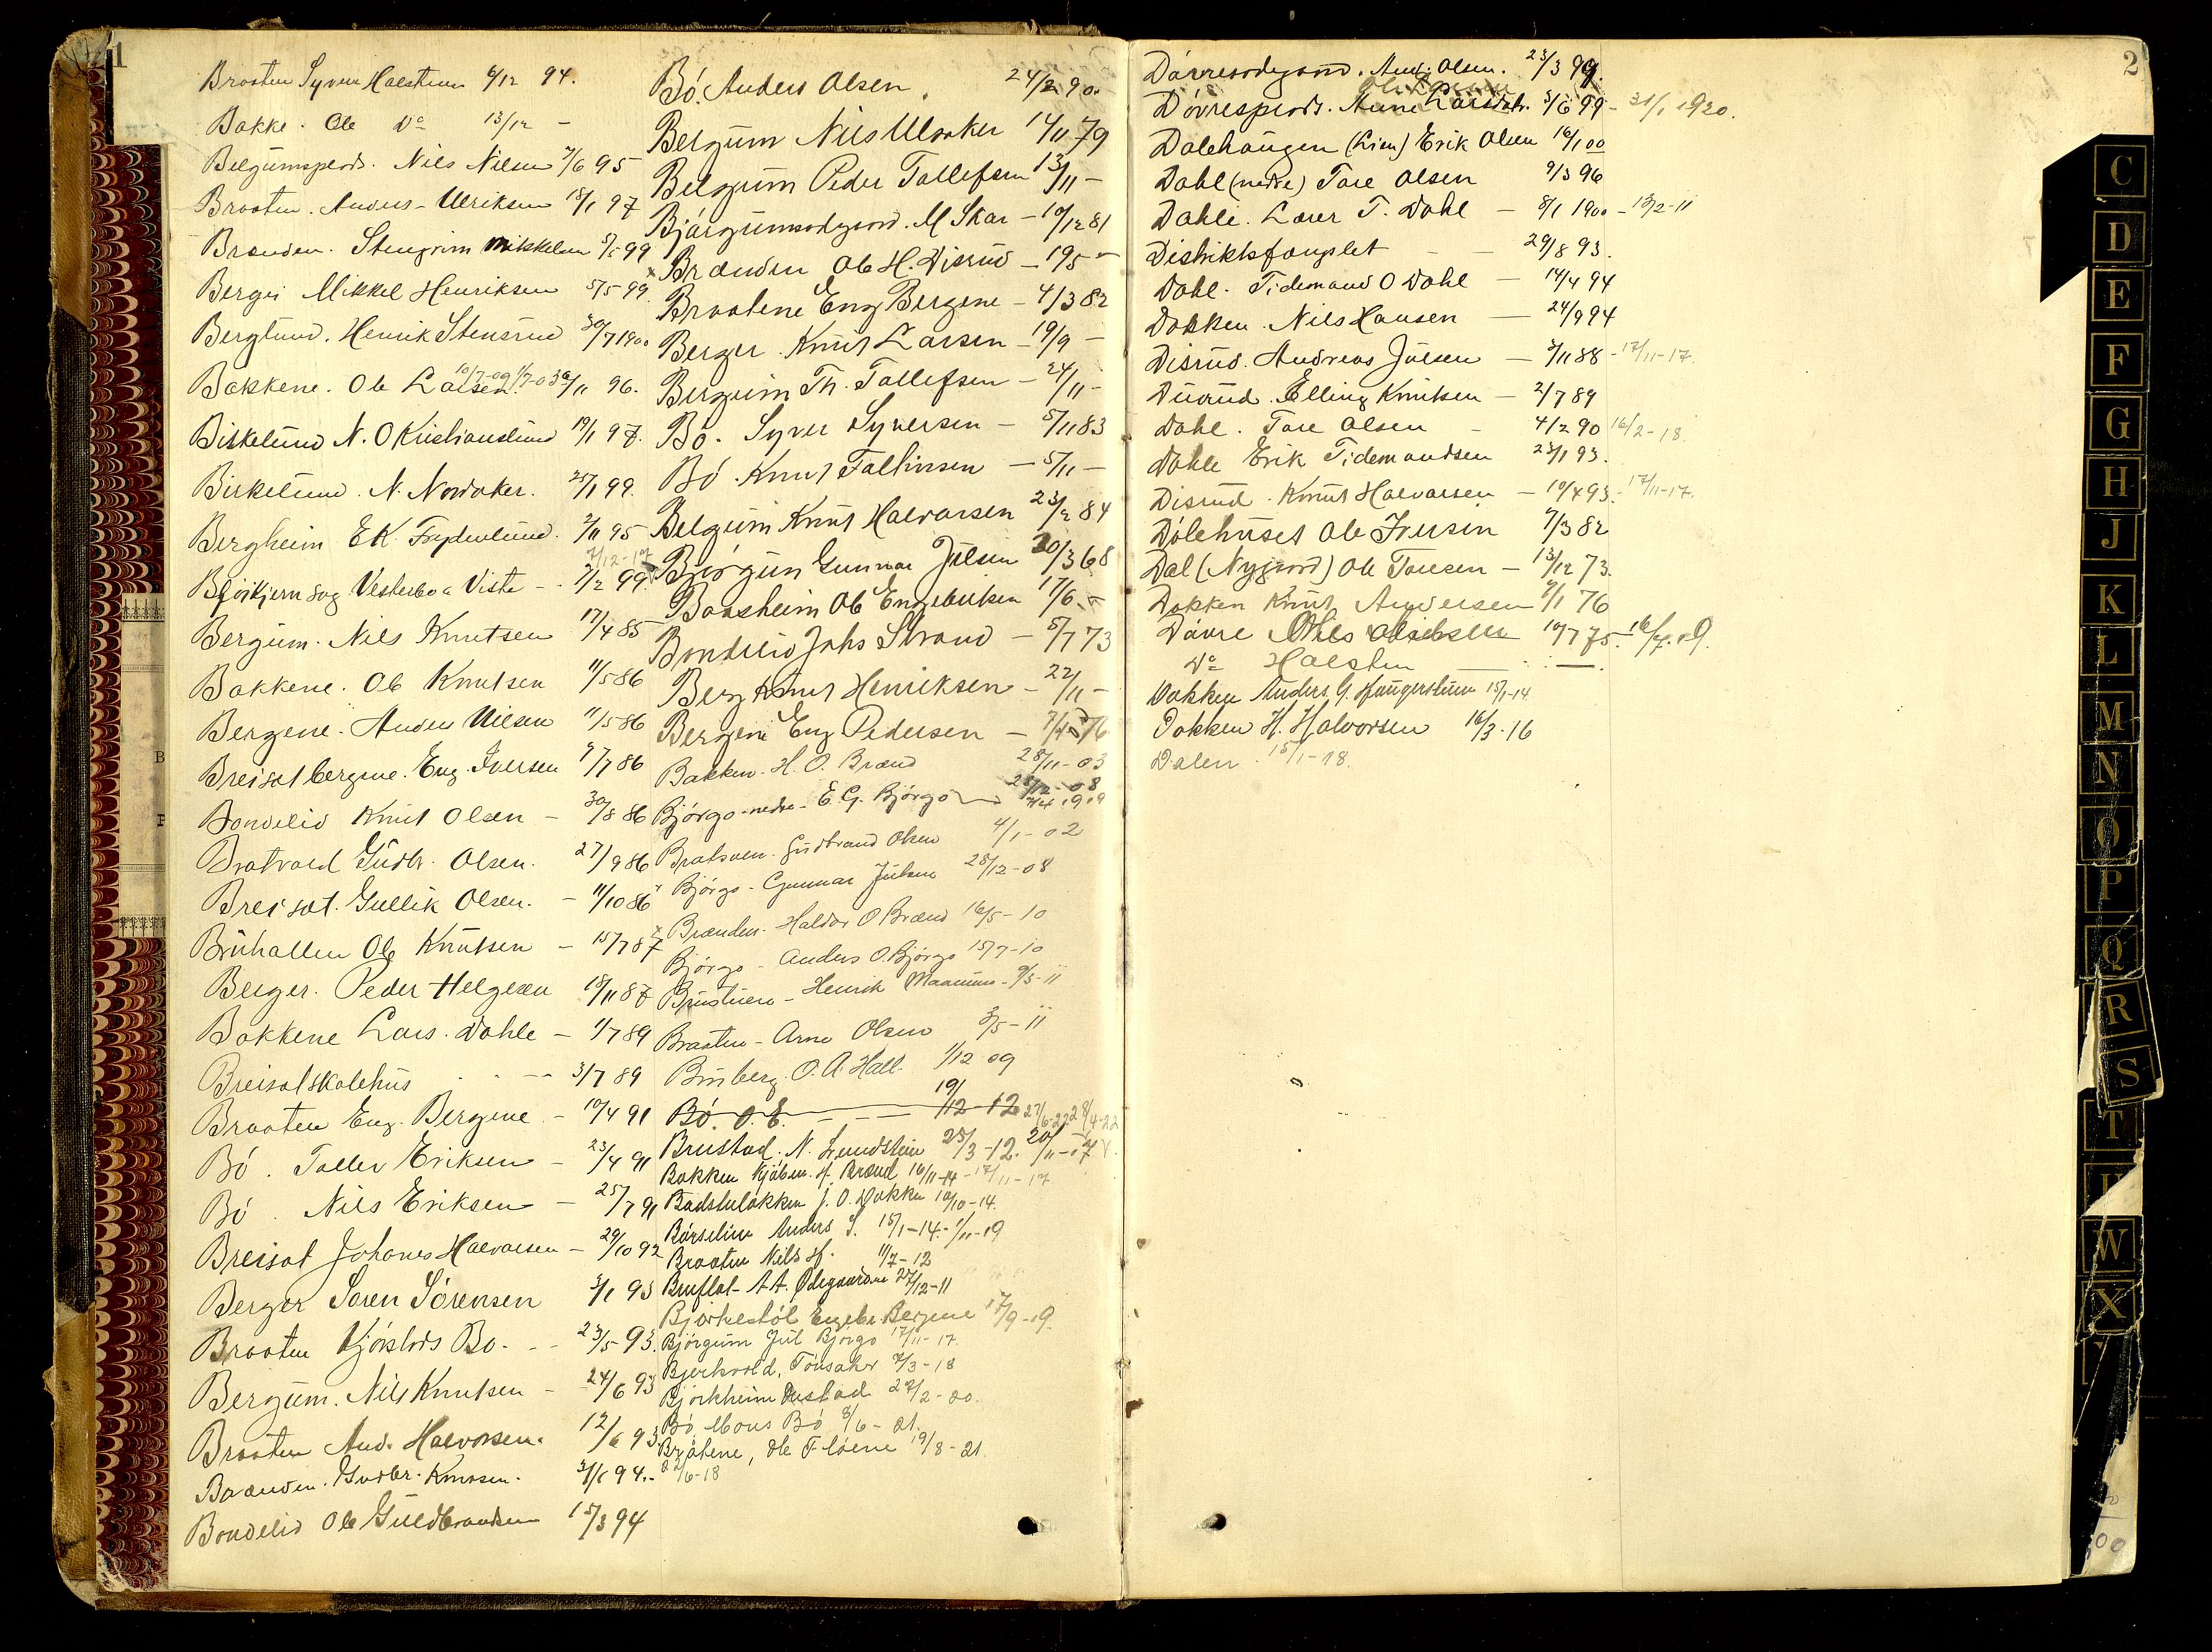 1
Braaten Syver Halsteen 6/12 94.
Bakke. Ole Do 13/12 -
Belgumsplads. Nils Nilsen 7/6 95
Braaten. Anders Ulriksen 18/1 97
Brænden. Stengrim Mikkelsen 5/5 99
Berge Mikkel Henriksen 5/5 99
Berglund. Henrik Stensrud 30/7 1900
Bakkene. Ole Larsen. 96.
N. O Kristianslund 19/1 97.
Birkelund. N. Nordaker. 25/1 99.
Bergheim E K Frydenlund. 2/11 95
Vesterbo a Viste 2/2 99.
Bergum. Nils Knutsen 17/4 85
Bakkene. Ole Knutsen 11/5 86
Bergene. Anders Nilsen 11/5 86
Breisatbergene. Eng. Iversen 9/7 86
Bondelid Knut Olsen - 30/8 86
Bratvold Gudbr. Olsen. 27/9 86
Breisat. Gullik Olsen. - 11/10 86
Bruhallen Ole Knutsen - 15/7 87
Berger. Peder Helgesen 18/11 87
Bakkene Lars. Dahle - 1/7 89
Breisatskolehus - 3/7 89
Braaten Eng. Bergene - 10/4 91
Bö. Tollev Eriksen - 23/4 91
Bö. Nils Eriksen - 25/7 91
Breisat Johanes Halvorsen - 29/10 92
Berger Søren Sørensen 3/1 93
Braaten Kjöstolvs Bö. - 23/5 93.
Bergum. Nils Knutsen - 24/6 93
Braaten And. Halvorsen. 12/6 93
Brænden. Gudbr. Knudsen. 3/1 94.- 22/6-18
Bondelid Ole Guldbrandsen 15/3 94
Bö. Anders Olsen. 24/2 90.
Belgum Nils Ulsaker 14/11 79
Belgum Peder Tollefsen 13/11 -
M Skar - 10/12 81
x Brænden Ole H. Disrud - 19/5 -
Braatene Eng Bergene - 4/3 82
Berger. Knut Larsen - 19/9 -
Bergum Th. Tollefsen - 24/11 -
Bö. Syver Syversen - 5/11 83
Bö. Knut Tallinsen - 5/11 -
Belgum Knut Halvorsen 23/2 84
Björgun Gunnar Julsen 20/3 68
Baasheim Ole Engebretsen 17/6 -
Bondelid Johs Strand - 5/7 73
Berg Knut Henriksen - 22/11 -
Bergene Eng Pedersen - 76
Bakken. H. O. Brænd 28/11-03
Björgo nedre - E. G. Björgo
Gudbrand Olsen 4/1-02
Björgo - Gunnar Julsen 28/12-08
x Brænden. Haldor O Brænd 16/5-10
Björgo - Anders O. Björgo 15/7-10
Henrik 9/5-11
Braaten - Arne Olsen 3/5-11
O. A. Hall. 1/12 09
Bö. O. E. 19/12-12
Brustad. N. Lundstein 25/3-12.
Bakken Kjöbm. H. Brænd 16/11-14 - 17/11-17
Badstulökken J. O. Dokken 10/10-14.
Anders S. 15/1-14. 1/11-19
Braaten Nils H. 11/7-12
Bruflat A A. Ødegaarden 27/12-11
Björkestöl Engebr. Bergene 17/9-19.
Björgum Jul Björgo 17/11-17
Bjerkvold, Tonsaker 2/3-18
Björkheim 27/2-20.
Bö Mons Bö 8/6-21.
Bråtene, Ole Flöene 19/8-21.
2
And. Olsen. 23/3 99.
Anne Larsdtr. 3/6 99 - 31/1 1920.
Dalehaugen (Lien) Erik Olsen 16/1 00
Dahl (nedre) Tore Olsen 9/3 96
Dahle. Lærer T. Dahl - 8/1 1900 - 13/2-11
Distriktsfængslet - - 29/8 93.
Dahl. Tidemand O Dahl - 14/4 94
Dokken. Nils Hansen - 24/9 94
Disrud. Andreas Julsen - 3/11 88 - 17/11-17.
Elling Knutsen - 2/7 89
Dahl. Tore Olsen - 4/2 90 16/2-18.
Dahle Erik Tidemandsen 23/1 93.
Disrud. Knut Halvorsen - 10/4 93. - 17/11-17.
Dölehuset Ole Iversen 7/3 82
Dal (Nygjord) Ole Toresen - 13/12 73.
Dokken Knut Andersen 9/1 76
Dövre Nils 10/7 75. - 16/7.09.
Do Halsten - -
Dokken Anders G. Haugerstuen 15/1-14
Dokken H. Halvorsen 16/3-16
Dalen. 15/1-18.
C
D
E
F
G
H
J
K
L
M
N
O
P
Q
R
S
T
W
X